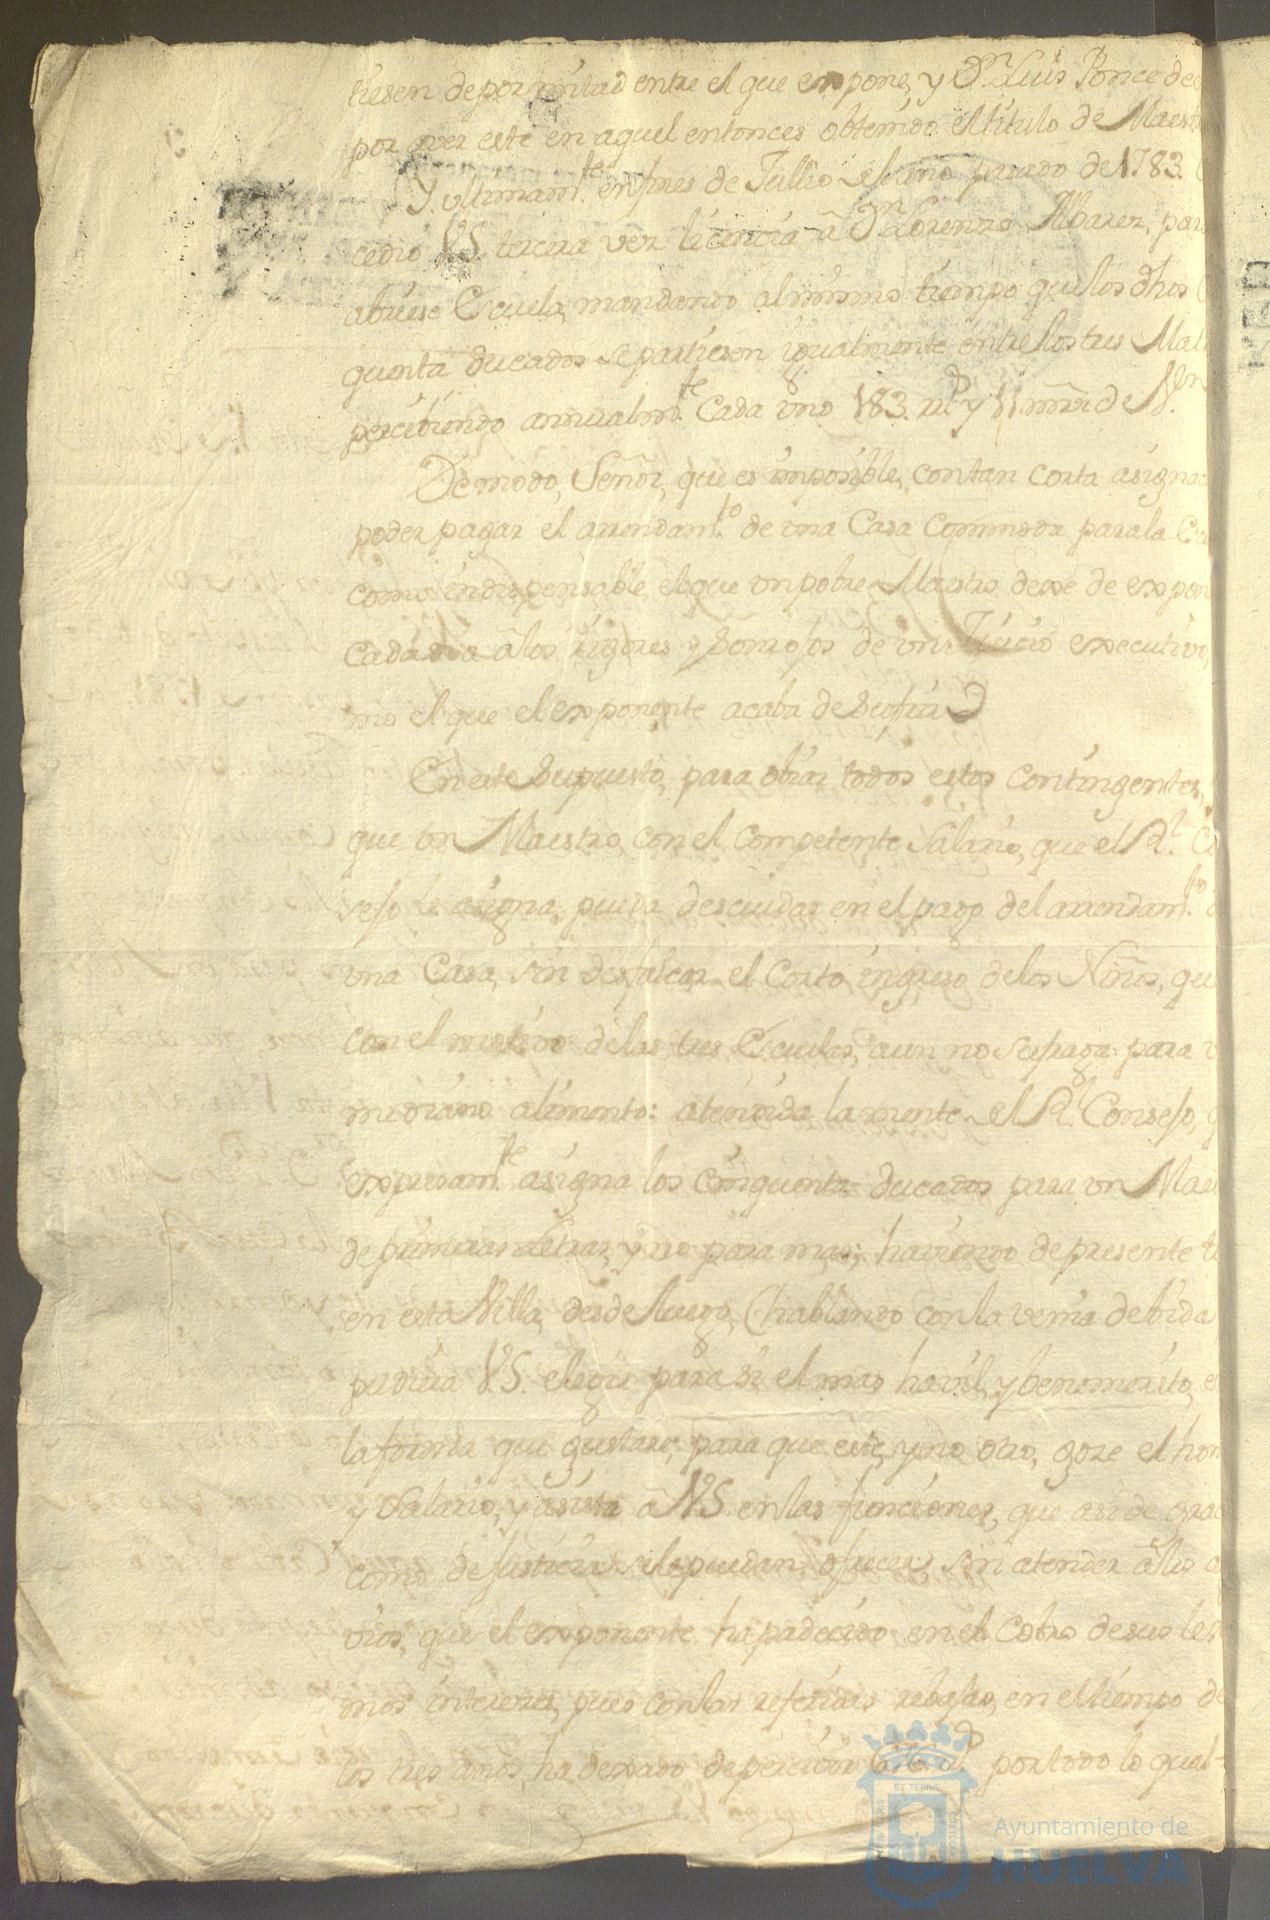 tiesen depor mitad entre el que expone, y Dn. Luis Ponce de
por aver este en aquel entonces obtenido el titulo de Maest
Y ultimamte. en fines de Jullio del año pasado de 1783.
cedio VS. tercera vez licencia â Dn. Lorenzo Albarez, par
abriese Escuela, mandando al mismo tiempo que los dhos
quenta ducados se partiesen igualmente entre los tres Ma
percibiendo annualmte. Cada uno 183. rs. y 11 mrs. de Vn.
De modo, Señor, que es imposible, con tan corta asigna
poder pagar el arrendamto. de una Casa Commoda para la
como indispensable, el que un pobre Maestro dexe de expon
cada dia â los rigores y sonrojos de un Juicio executivo,
mo el que el exponente acaba de sufrir
En este supuesto, para obiar todos estos contingentes,
que un Maestro, con el competente Salario, que el Rl. Co
sejo le asigna, pueda descuidar en el pago del arrendamto.
una Casa, sin desfalcar el Corto ingreso de los Niños, qu
con el motivo de las tres Escuelas, aun no sufraga para
mediano alimento: atendida la mente del Rl. Consejo,
expresamte. asigna los cinquenta ducados para un Mae
de primeras Letras, y no para mas; haviendo de presente
en esta Villa, desde luego, (hablando con la venia debida
podria VS. elegir para si, el mas havil, y benemerito,
la forma que gustare, para que este, y no otro, goze el hon
y Salario, y asista â VS. en las funciones, que asi de gra
como de justicia se le puedan ofrecer, sin atender â los
vios, que el exponente ha padecido en el Cobro de sus le
mos intereses, pues con las referidas rebajas, en el tiempo de
los tres años, ha dexado de percibir por todo lo qual
ET TERRÆ
Ayuntamiento de
HUELVA